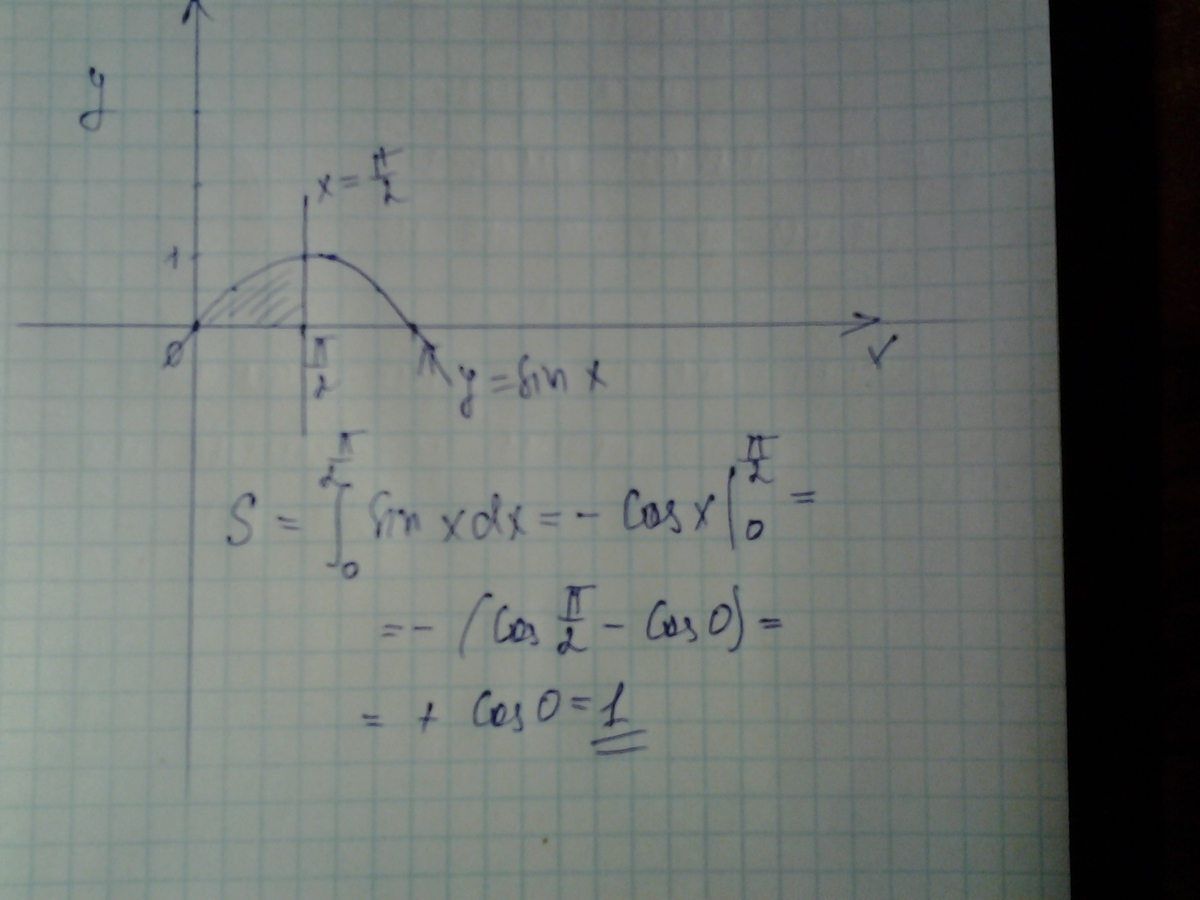 y
x = π/2
1
0
π/2
x
y = sin x
S = ∫₀^(π/2) sin x dx = - cos x |₀^(π/2) =
= - (cos π/2 - cos 0) =
= + cos 0 = 1